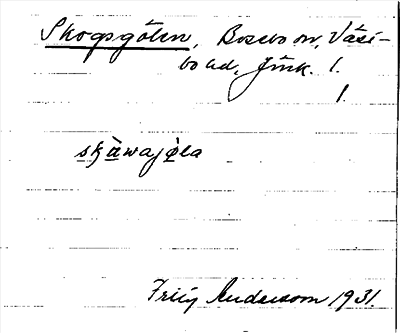 Skogsgölen, Bosebo sn, Väst-
bo hd, Jönk. l.
1.
skàwajøla
Frity Anderson 1931